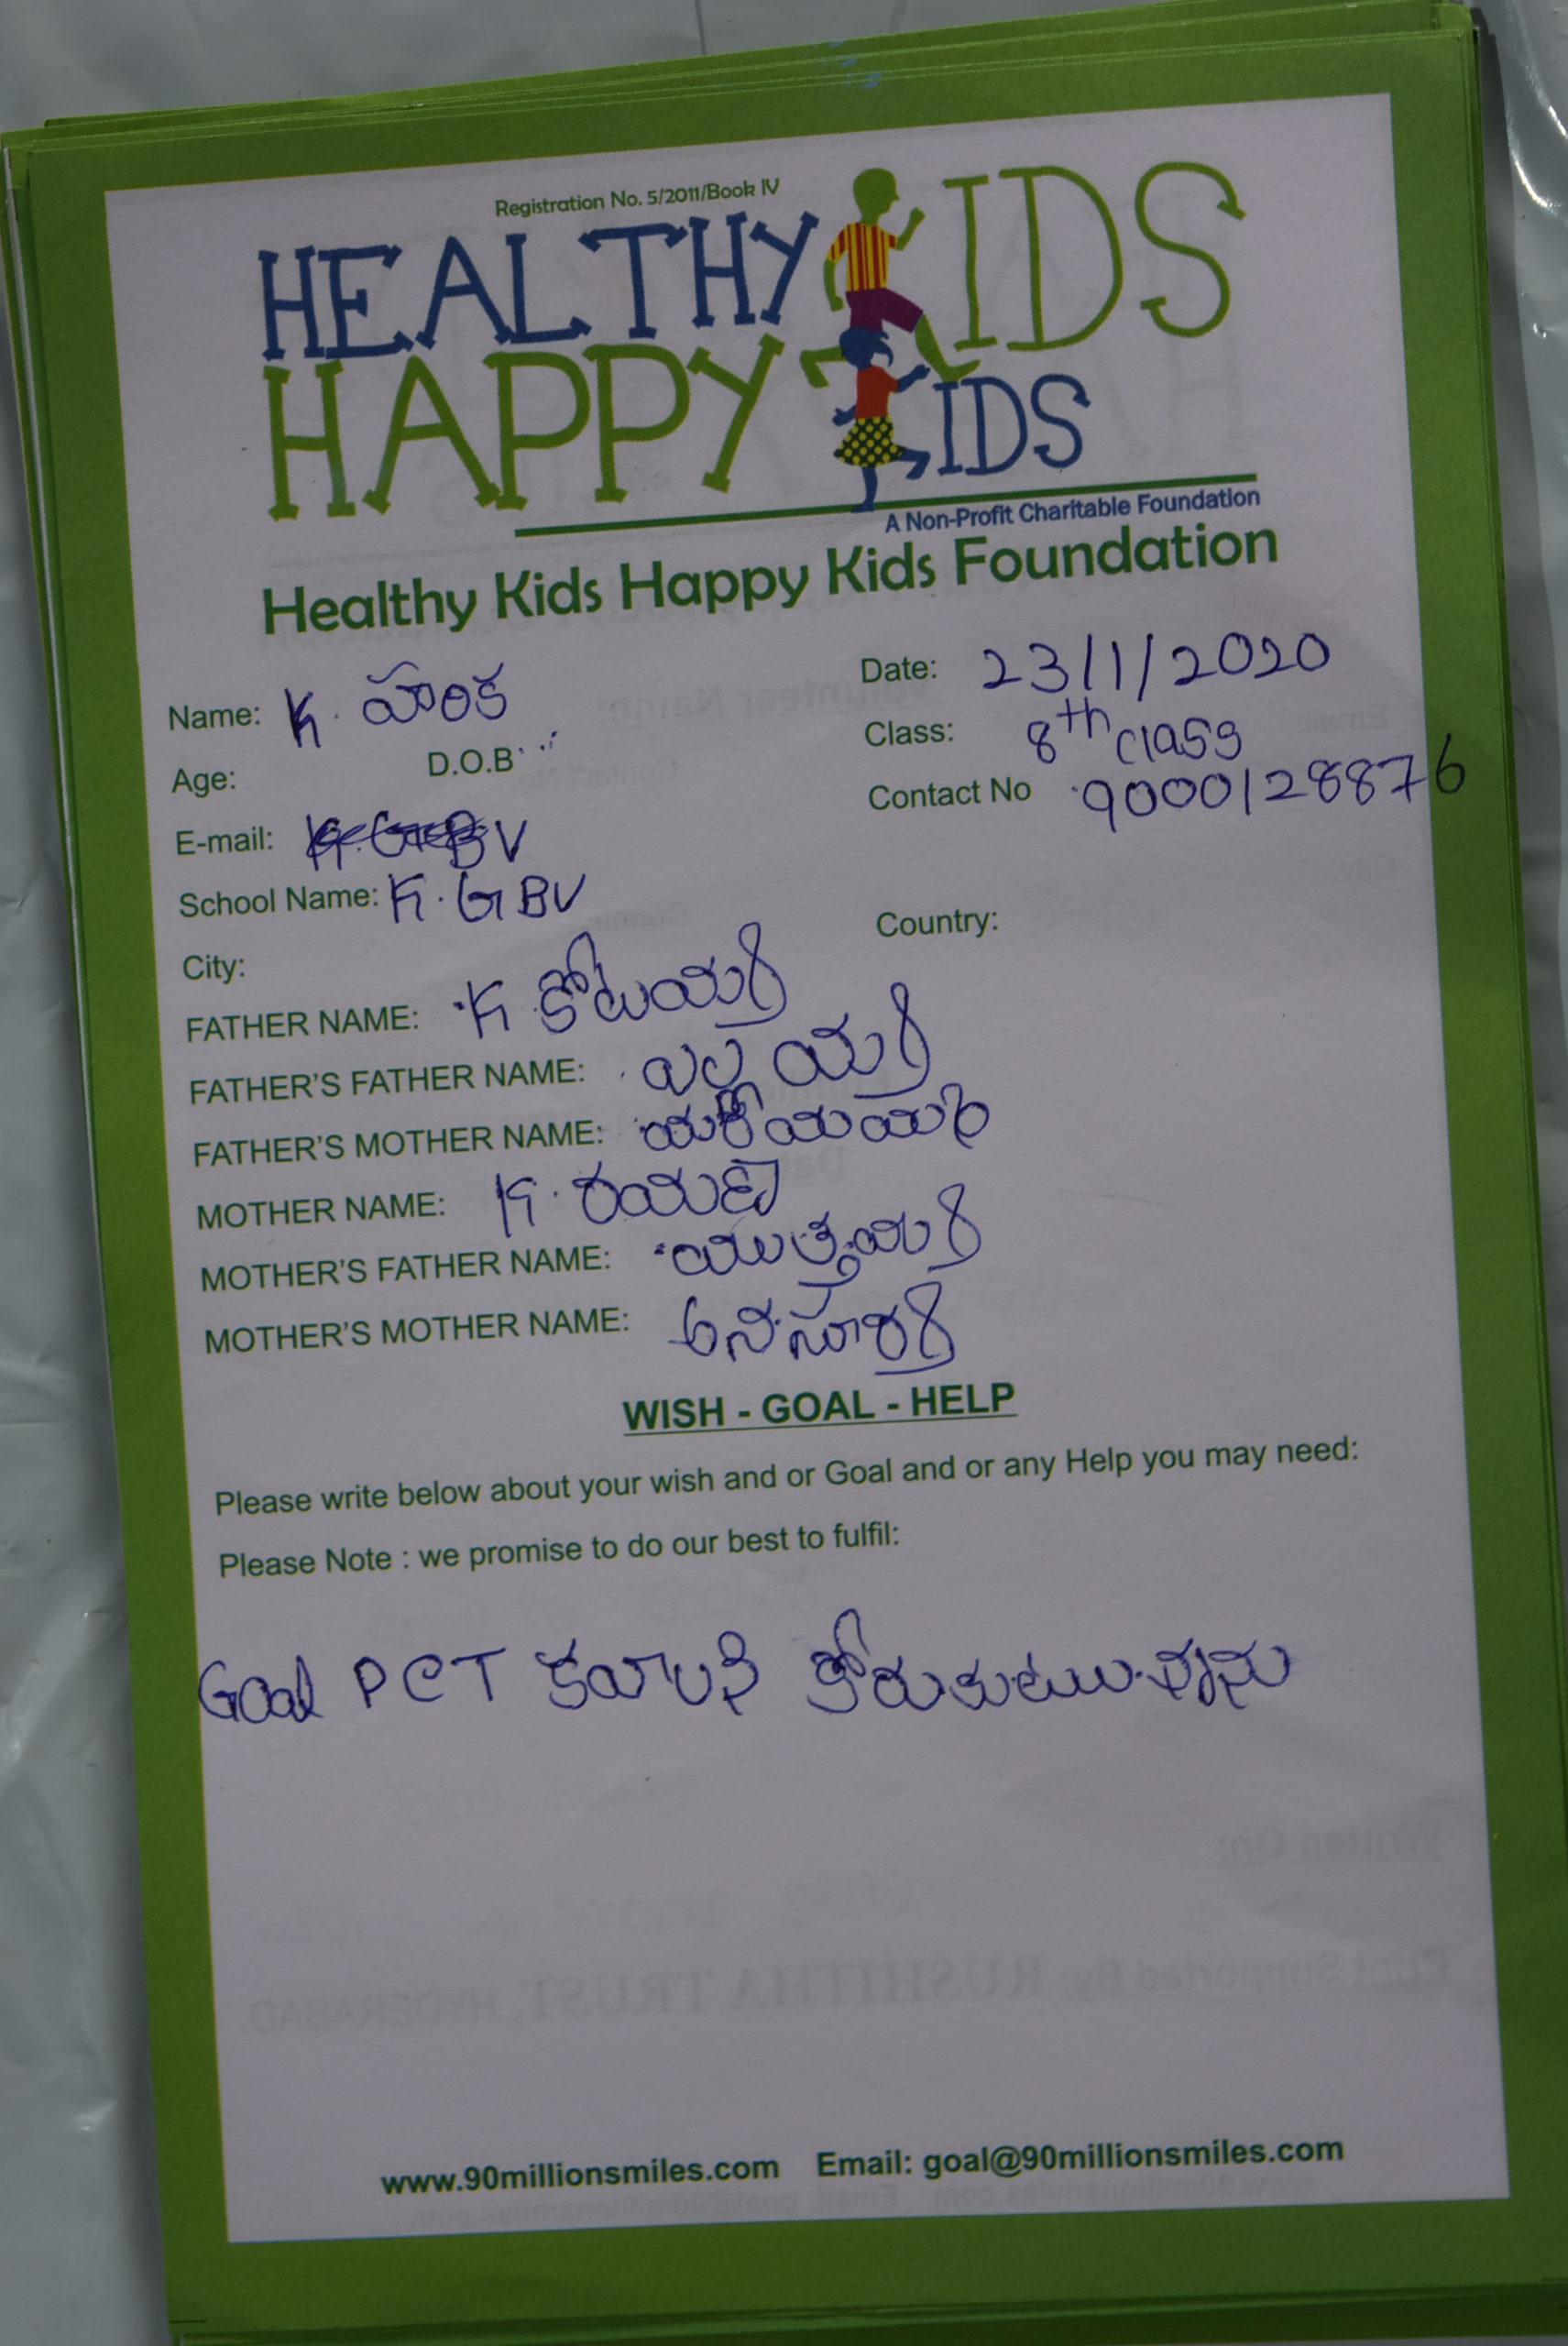 Registration No. 5/2011/Book IV
HEALTHY KIDS
HAPPY KIDS
A Non-Profit Charitable Foundation
Healthy Kids Happy Kids Foundation
Name: K. హారిక
Date: 23/1/2020
Age: D.O.B
Class: 8th class
E-mail:
Contact No 9000128876
School Name: K.GBV
City: Country:
FATHER NAME: K కోటయ్య
FATHER'S FATHER NAME: ఎల్లయ్య
FATHER'S MOTHER NAME:
MOTHER NAME: K. రమణ
MOTHER'S FATHER NAME: ముత్తయ్య
MOTHER'S MOTHER NAME:
WISH - GOAL - HELP
Please write below about your wish and or Goal and or any Help you may need:
Please Note : we promise to do our best to fulfil:
Goal PCT కావాలని కోరుకుటున్నాను
www.90millionsmiles.com Email: goal@90millionsmiles.com